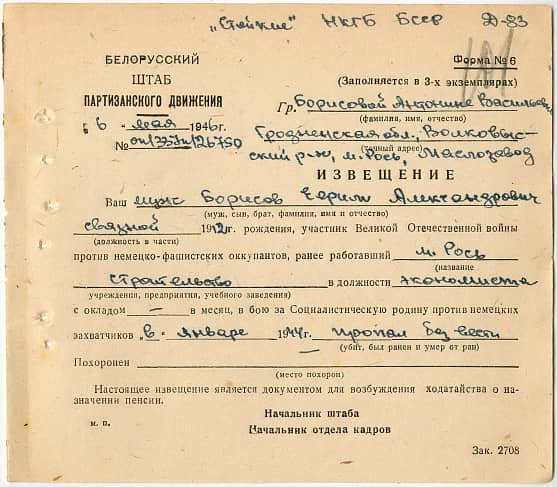 „Стойкие" НКГБ БССР Д-83
БЕЛОРУССКИЙ
ШТАБ
ПАРТИЗАНСКОГО ДВИЖЕНИЯ
Форма № 6
(Заполняется в 3-х экземплярах)
Гр. Борисовой Антонине Васильевне
(фамилия, имя, отчество)
„6 " мая 1946г.
Гродненская обл., Волковыс-
(точный адрес)
ский р-н, м. Рось, Маслозавод
ИЗВЕЩЕНИЕ
Ваш муж Борисов Александрович
(муж, сын, брат, фамилия, имя и отчество)
связной 1912г. рождения, участник Великой Отечественной войны
(должность в части)
против немецко-фашистских оккупантов, ранее работавший м. Рось
(название
строительство в должности экономиста
учреждения, предприятия, учебного заведения)
с окладом — в месяц, в бою за Социалистическую родину против немецких
захватчиков „в" январе 1944г. пропал без вести
(убит, был ранен и умер от ран)
Похоронен —
(место похорон)
Настоящее извещение является документом для возбуждения ходатайства о на-
значении пенсии.
Начальник штаба
м. п.
Начальник отдела кадров
Зак. 2708